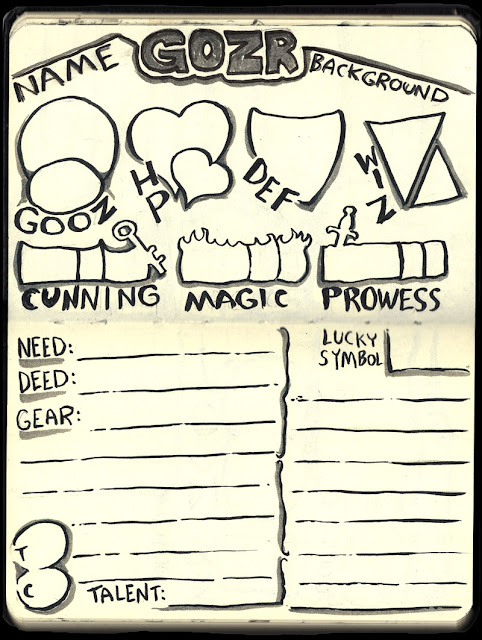 GOZR
NAME
BACKGROUND
GOOZ
HP
DEF
WIZ
CUNNING MAGIC PROWESS
NEED:
DEED:
GEAR:
LUCKY
SYMBOL
T
C
TALENT: